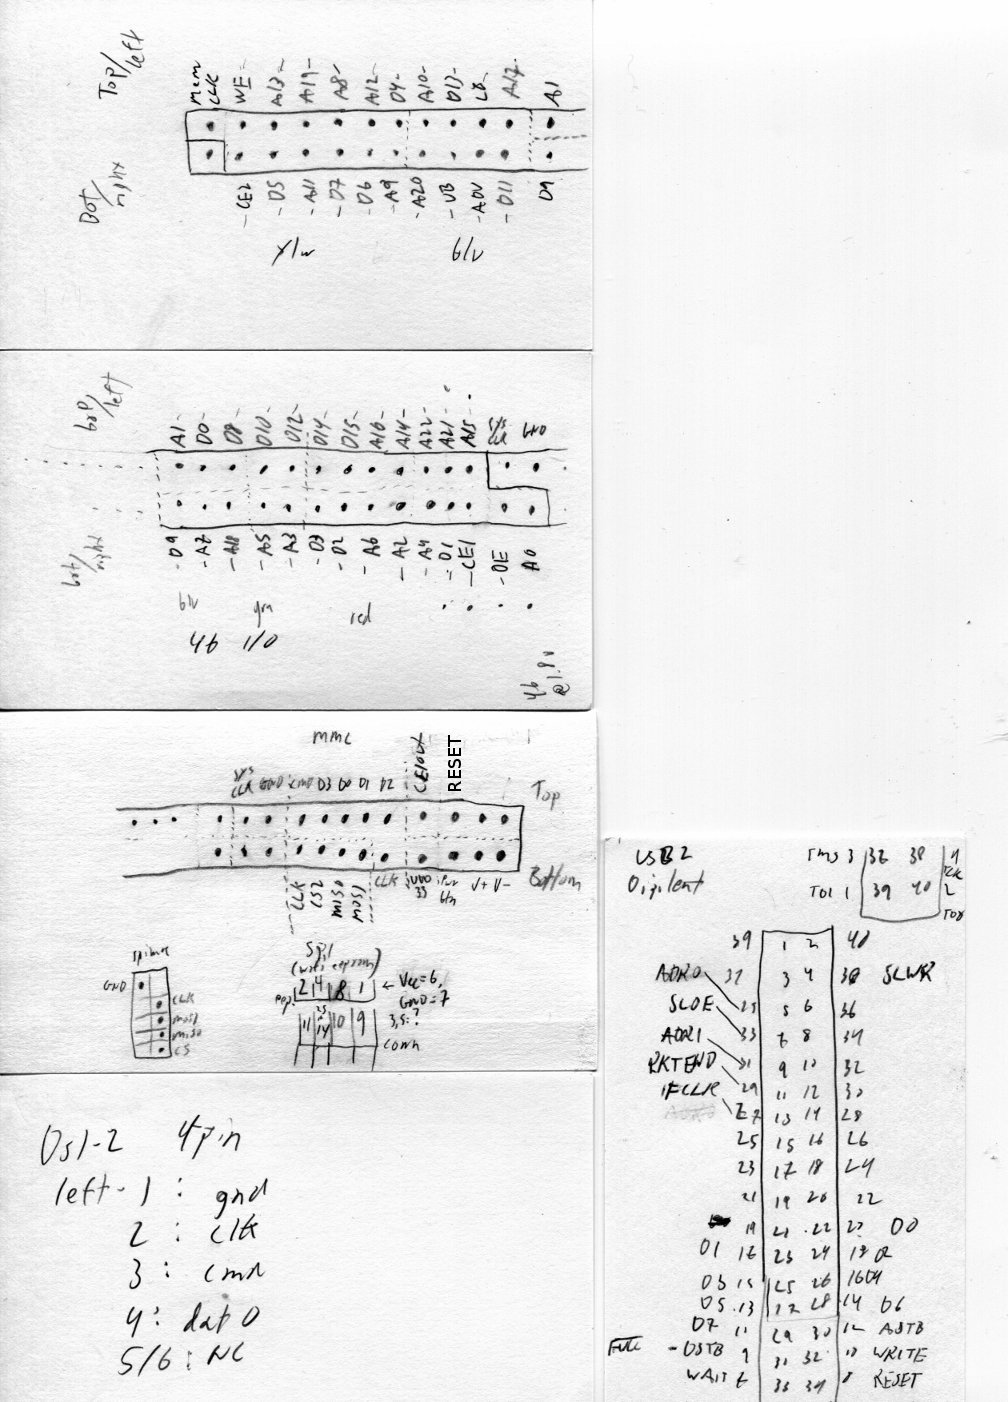 Top/
left
Mem
CLK
WE-
A13-
A19-
A8-
A12-
D4-
A10-
D13-
LB-
A17-
A1
Bot/
right
-CE2
-D5
-A11
-D7
-D6
-A9
-A20
-UB
-ADV
-D11
D9
top/
left
A1-
D0-
D8-
D10-
D12-
D14-
D15-
A16-
A14-
A22-
A21-
A15-
SYS
CLK
GND
bot/
right
-D9
-A7
-A18
-A5
-A3
-D3
-D2
-A6
-A2
-A4
-D1
-CE1
-OE
A0
blu
grn
red
46 I/O
46
@1.9v
MMC
SYS
CLK
GND
CMD
D3
D0
D1
D2
CE1OUT
RESET
Top
Bottom
CLK
CS2
MISO
MOSI
CLK
VDD
33
Pwr
btn
V+
V-
spimoc
GND
CLK
MOSI
MISO
CS
SPI
(work eeprom)
pop.
2 4 8 1
← Vcc=6,
GND=7
3,5:?
11 14 10 9
conn
Ds1-2 4pin
left- 1 : gnd
2 : clk
3 : cmd
4 : dat0
5/6 : NC
USB2
Digilent
TMS 3 37 38 4
TCK
TDI 1 39 40 2
TDO
39 1 2 40
ADR0 37 3 4 38 SLWR
SLOE 35 5 6 36
ADR1 33 7 8 34
PKTEND 31 9 10 32
IFCLK 29 11 12 30
27 13 14 28
25 15 16 26
23 17 18 24
21 19 20 22
19 21 22 20 D0
D1 17 23 24 18 D2
D3 15 25 26 16 D4
D5 13 27 28 14 D6
D7 11 29 30 12 ASTB
-DSTB 9 31 32 10 WRITE
WAIT 7 33 34 8 RESET